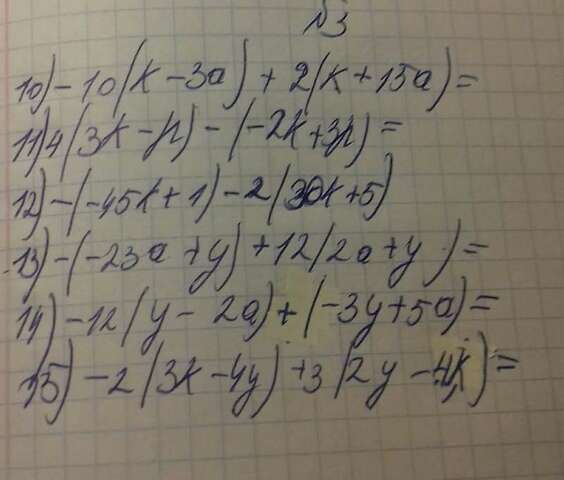 №3
10) -10(k-3a)+2(k+15a)=
11) 4(3k-p)-(-2k+3p)=
12) -(-45k+1)-2(30k+5)
13) -(-23a+y)+12(2a+y)=
14) -12(y-2a)+(-3y+5a)=
15) -2(3k-4y)+3(2y-4k)=